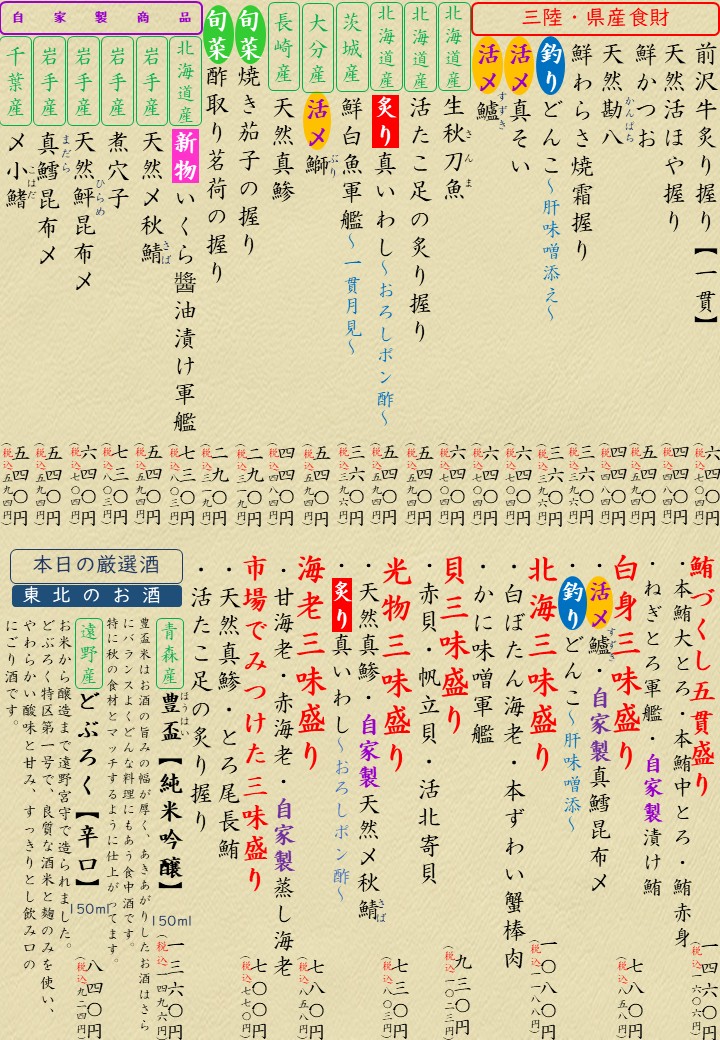 三陸・県産食財
前沢牛炙り握り【一貫】 六四〇円(税込七〇四円)
天然活ほや握り 四四〇円(税込四八四円)
鮮かつお 五四〇円(税込五九四円)
天然勘八 かんぱち 四四〇円(税込四八四円)
鮮わらさ焼霜握り 三六〇円(税込三九六円)
釣り どんこ～肝味噌添え～ 三六〇円(税込三九六円)
活〆 真そい 六四〇円(税込七〇四円)
活〆 鱸 すずき 六四〇円(税込七〇四円)
北海道産 生秋刀魚 さんま 六四〇円(税込七〇四円)
北海道産 活たこ足の炙り握り 五四〇円(税込五九四円)
北海道産 炙り 真いわし～おろしポン酢～ 五四〇円(税込五九四円)
茨城産 鮮白魚軍艦～一貫月見～ 三六〇円(税込三九六円)
大分産 活〆 鰤 ぶり 五四〇円(税込五九四円)
長崎産 天然真鯵 四四〇円(税込四八四円)
旬菜 焼き茄子の握り 二九〇円(税込三一九円)
旬菜 酢取り茗荷の握り 二九〇円(税込三一九円)
自家製商品
北海道産 新物 いくら醬油漬け軍艦 七三〇円(税込八〇三円)
岩手産 天然〆秋鯖 さば 五四〇円(税込五九四円)
岩手産 煮穴子 七三〇円(税込八〇三円)
岩手産 天然鮃昆布〆 ひらめ 六四〇円(税込七〇四円)
岩手産 真鱈昆布〆 まだら 五四〇円(税込五九四円)
千葉産 〆小鰭 こはだ 五四〇円(税込五九四円)
鮪づくし五貫盛り 一四六〇円(税込一六〇六円)
・本鮪大とろ・本鮪中とろ・鮪赤身
・ねぎとろ軍艦・自家製漬け鮪
白身三味盛り 七八〇円(税込八五八円)
・活〆鱸 すずき 自家製真鱈昆布〆
・釣りどんこ～肝味噌添～
北海三味盛り 一〇八〇円(税込一一八八円)
・白ぼたん海老・本ずわい蟹棒肉
・かに味噌軍艦
貝三味盛り 九三〇円(税込一〇二三円)
・赤貝・帆立貝・活北寄貝
光物三味盛り 七三〇円(税込八〇三円)
・天然真鯵・自家製天然〆秋鯖 さば
・炙り真いわし～おろしポン酢～
海老三味盛り 七八〇円(税込八五八円)
・甘海老・赤海老・自家製蒸し海老
市場でみつけた三味盛り 七〇〇円(税込七七〇円)
・天然真鯵・とろ尾長鮪
・活たこ足の炙り握り
本日の厳選酒
東北のお酒
青森産 豊盃 ほうはい 【純米吟醸】 150ml 一三六〇円(税込一四九六円)
豊盃米はお酒の旨みの幅が厚く、あきあがりしたお酒はさら
にバランスよくどんな料理にもあう食中酒です。
特に秋の食材とマッチするように仕上がってます。
遠野産 どぶろく【辛口】 150ml 八四〇円(税込九二四円)
お米から醸造まで遠野宮守で造られました。
どぶろく特区第一号で、良質な酒米と麹のみを使い、
やわらかい酸味と甘み、すっきりとし飲み口の
にごり酒です。